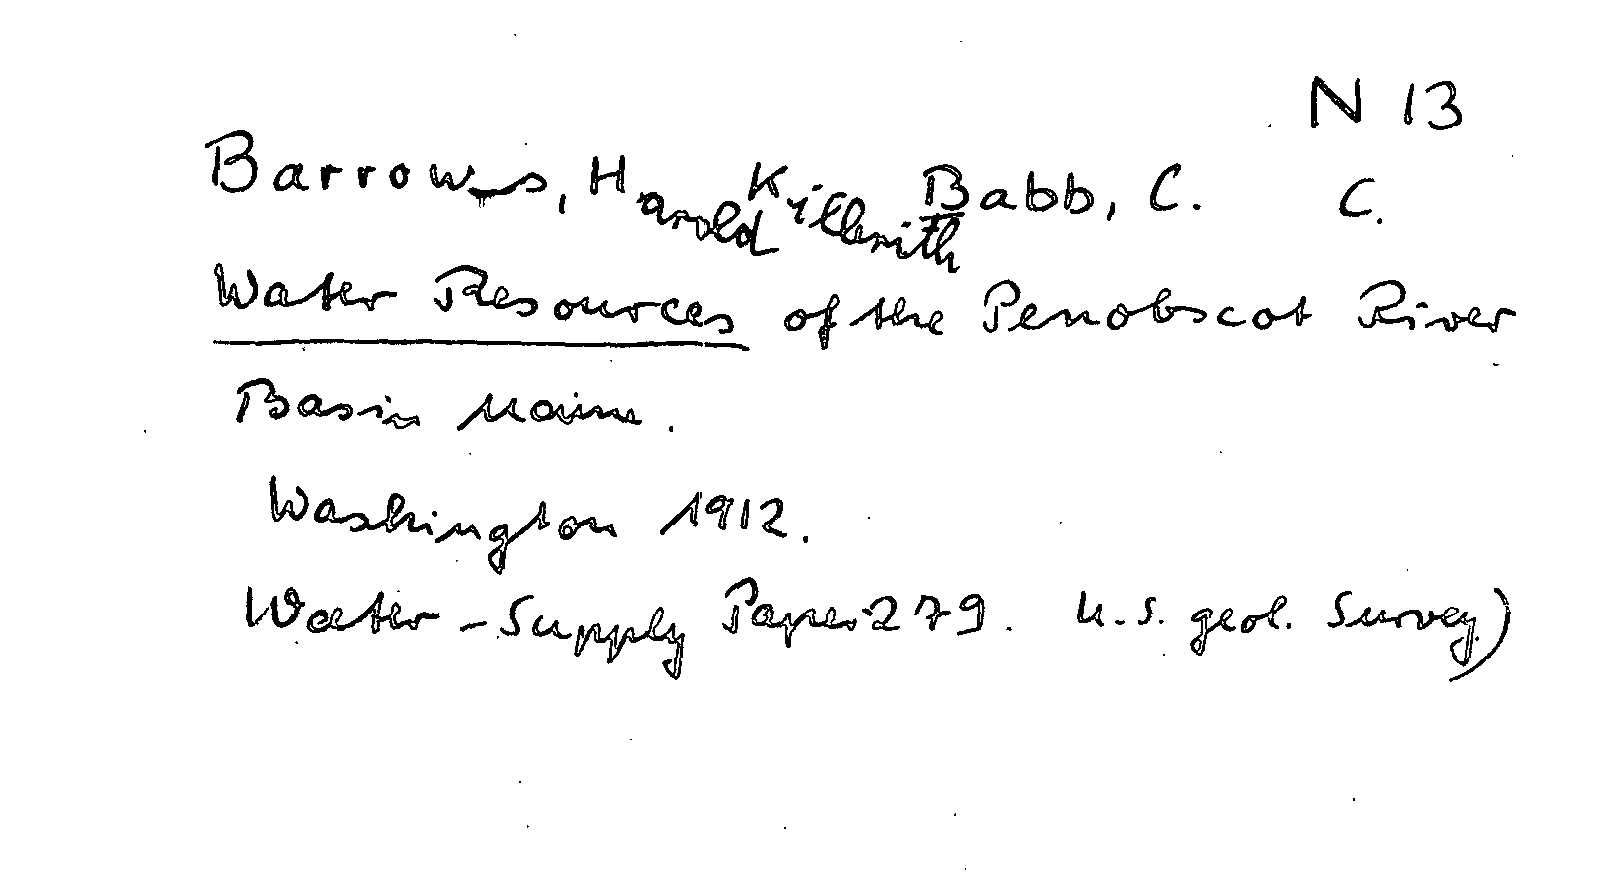 N 13
Barrows, Harold Killbrith Babb, C. C.
Water Resources of the Penobscot River
Basin Maine.
Washington 1912.
Water-Supply Paper 279. U.S. geol. Survey)